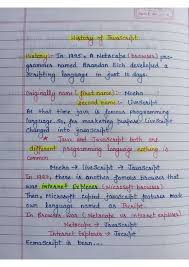 History of Javascript
History:- In 1995, A Netscape (browser) pro-
grammer named Brandan Eich developed a
Scripting language in just 10 days.
Originally name: first name:- Mocha
second name:- LiveScript
At that time java is famous programming
language. So, for marketing business' LiveScript
changed into javascript.
* Java and JavaScript both are
different programming language nothing is
common
Mocha → LiveScript → JavaScript
In 1996, there is another famous browser that
was intranet Explorer (microsoft browser)
Then, Microsoft copied javaScript features make
own language named as Jscript
In Browser war (Netscape vs intranet explorer)
Netscape → JavaScript
Intranet Explorer → Jscript
EcmaScript is been....